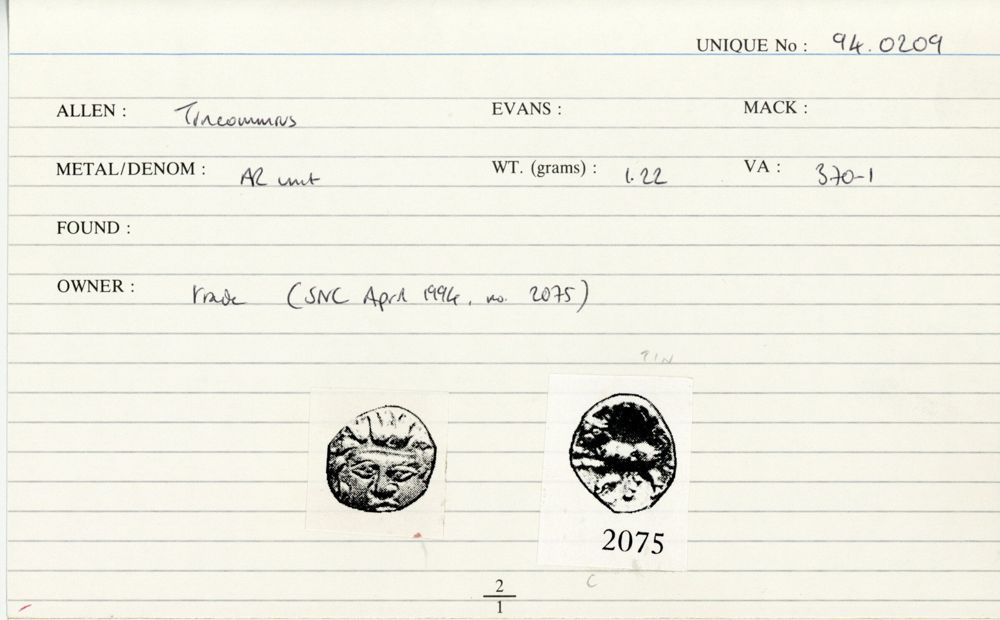 UNIQUE No : 94.0209
ALLEN : Tincommius EVANS : MACK :
METAL/DENOM : AR unit WT. (grams) : 1.22 VA : 370-1
FOUND :
OWNER : trade (SNC April 1994, no. 2075)
TIN
2075
C
2
1